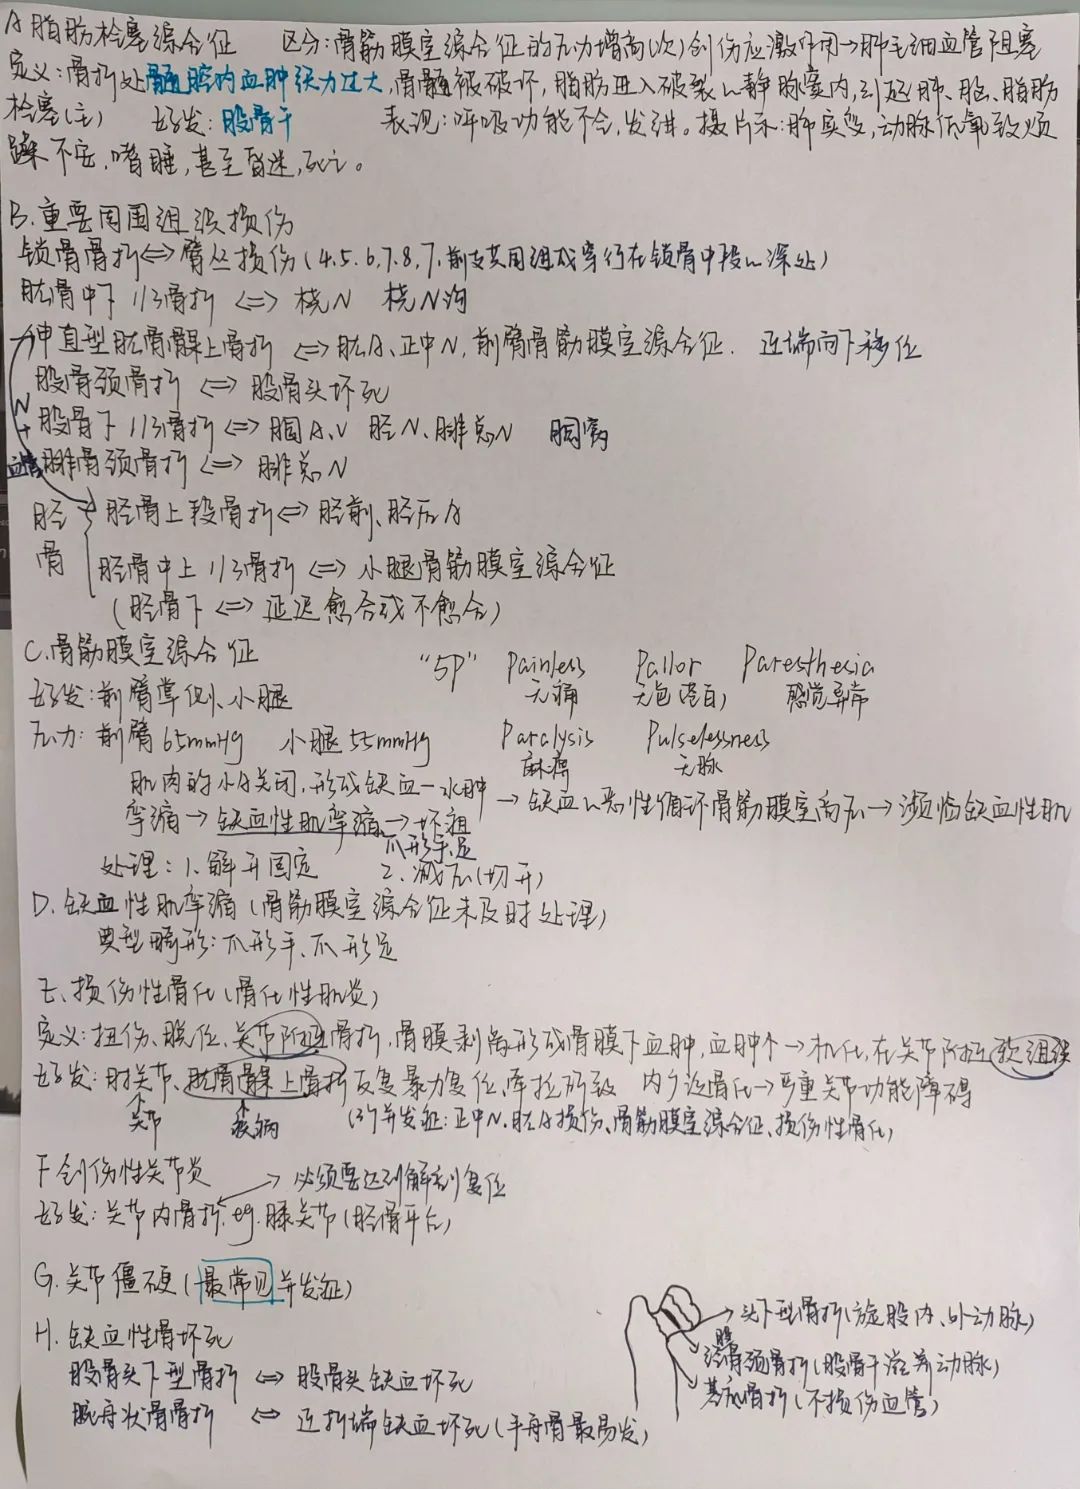 A 脂肪栓塞综合征 区分:骨筋膜室综合征的压力增高(次)创伤应激作用→肺毛细血管阻塞
定义:骨折处骨髓腔内血肿张力过大,骨髓被破坏,脂肪进入破裂的静脉窦内,引起肺、脑、脂肪
栓塞(主) 好发:股骨干 表现:呼吸功能不全,发绀。摄片示:肺实变,动脉低氧致烦
躁不安,嗜睡,甚至昏迷,死亡。
B.重要周围组织损伤
锁骨骨折⇔臂丛损伤(4.5.6.7.8,7,前支共同组成穿行在锁骨中段的深处)
肱骨中下1/3骨折⇔桡N 桡N沟
伸直型肱骨髁上骨折⇔肱A、正中N,前臂骨筋膜室综合征. 近端向下移位
股骨颈骨折⇔股骨头坏死
N+血管
股骨下1/3骨折⇔腘A、V 胫N、腓总N 腘窝
腓骨颈骨折⇔腓总N
胫骨
胫骨上段骨折⇔胫前、胫后A
胫骨中上1/3骨折⇔小腿骨筋膜室综合征
(胫骨下⇔延迟愈合或不愈合)
C.骨筋膜室综合征 “5P” Painless Pallor Paresthesia
无痛 苍白 感觉异常
好发:前臂掌侧、小腿
压力:前臂65mmHg 小腿55mmHg Paralysis Pulselessness
麻痹 无脉
肌肉的小A关闭,形成缺血-水肿→缺血的恶性循环骨筋膜室高压→濒临缺血性肌
挛缩→缺血性肌挛缩→坏疽
爪形手、足
处理:1.解开固定 2.减压(切开)
D.缺血性肌挛缩(骨筋膜室综合征未及时处理)
典型畸形:爪形手、爪形足
E、损伤性骨化(骨化性肌炎)
定义:扭伤、脱位、关节附近骨折,骨膜剥离形成骨膜下血肿,血肿个→机化,在关节附近软组织
内广泛骨化→严重关节功能障碍
好发:肘关节、肱骨髁上骨折反复暴力复位,牵拉所致
关节 疾病 (3个并发症:正中N.肱A损伤、骨筋膜室综合征、损伤性骨化)
F 创伤性关节炎 →必须要达到解剖复位
好发:关节内骨折.eg.膝关节(胫骨平台)
G.关节僵硬(最常见并发症)
H.缺血性骨坏死
股骨头下型骨折⇔股骨头缺血坏死
腕舟状骨骨折⇔近折端缺血坏死(手舟骨最易发)
→头下型骨折(旋股内、外动脉)
经股骨颈骨折(股骨干滋养动脉)
基底骨折(不损伤血管)